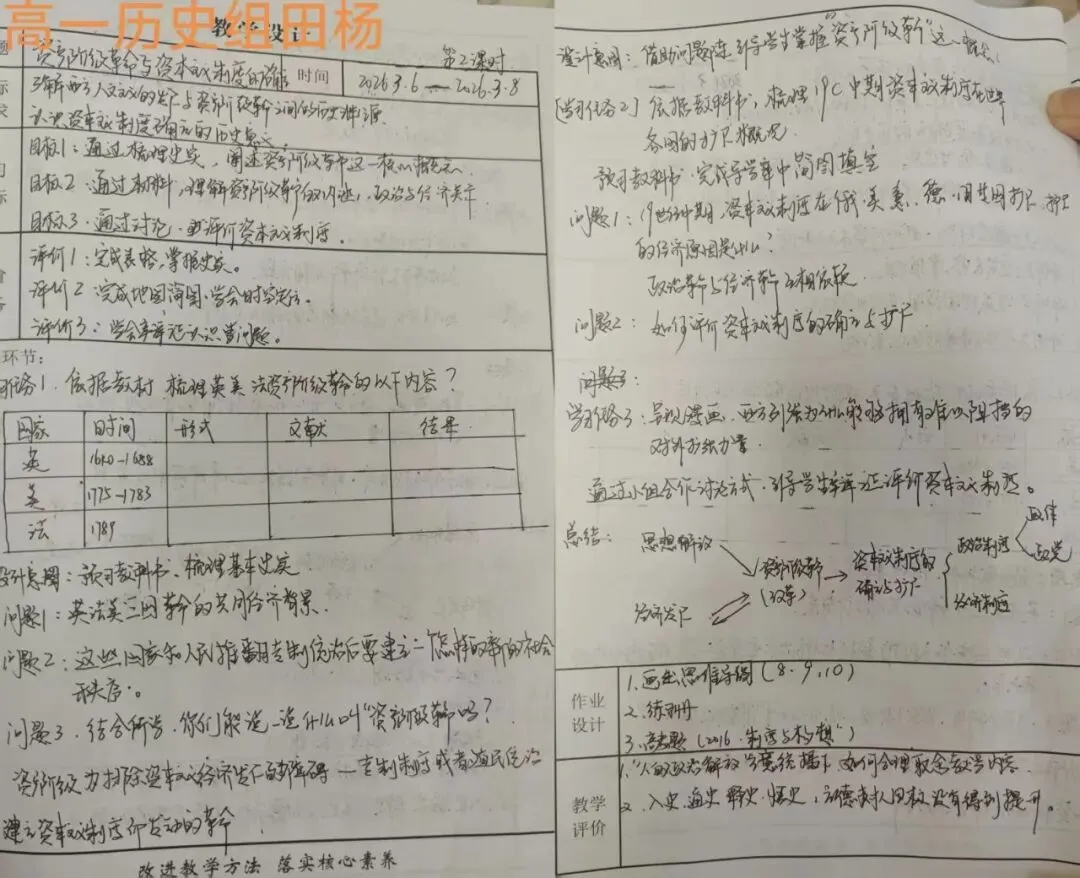 高一历史组田杨
教学设计
资产阶级革命与资本主义制度的确立 时间 第2课时
2026.3.6 — 2026.3.8
了解西方人文主义的发展与资产阶级革命之间的历史渊源
认识资本主义制度确立的历史意义。
目标1：通过梳理史实，阐述资产阶级革命这一核心概念。
目标2：通过材料，理解资产阶级革命的，政治与经济关系
目标3：通过讨论，评价资本主义制度。
评价1：完成表格，掌握史实。
评价2 完成地图简图，学会时空定位。
评价3：学会辩证认识当问题。
环节：
任务1. 依据教材 梳理英美法资产阶级革命的以下内容？
国家 时间 形式 文献 结果
英 1640-1688
美 1775-1783
法 1789
设计意图：预习教科书、梳理基本史实
问题1：英法美三国革命的共同经济背景.
问题2：这些国家和人民推翻专制统治后要建立一怎样的新的社会
秩序。
问题3. 结合所学，你们能说一说什么叫“资产阶级革命”吗？
资产阶级为扫除资本主义经济发展的障碍——专制制度或者殖民统治
建立资本主义制度而发动的革命
改进教学方法 落实核心素养
设计意图：借助问题链，引导学生掌握“资产阶级革命”这一概念
[学习任务2] 依据教科书，梳理19C中期资本主义制度在世界
各国的扩展概况.
预习教科书、完成导学案中简图填空
问题1：19世纪中期，资本主义制度在俄、美、意、德、日其因扩展
的经济原因是什么？
政治革命与经济革命互相依赖
问题2：如何评价资本主义制度的确立与扩展
问题3：
学习任务3：呈现漫画，西方列强为什么能够拥有难以阻挡的
对外扩张力量.
通过小组合作讨论方式，引导学生辩证评价资本主义制度.
总结： 思想解放
经济发展
资产阶级革命
（改革）
资本主义制度的
确立与扩展
政治制度
经济制度
政党
作业设计
1. 画出思维导图（8、9、10）
2. 练习册
3. 高考题（2016·制度与构想）
教学评价
1.“人的政治解放”大概念统摄下，如何合理取舍教学内容.
2. 入史、通史、释史、悟史，立德树人目标没有得到提升。